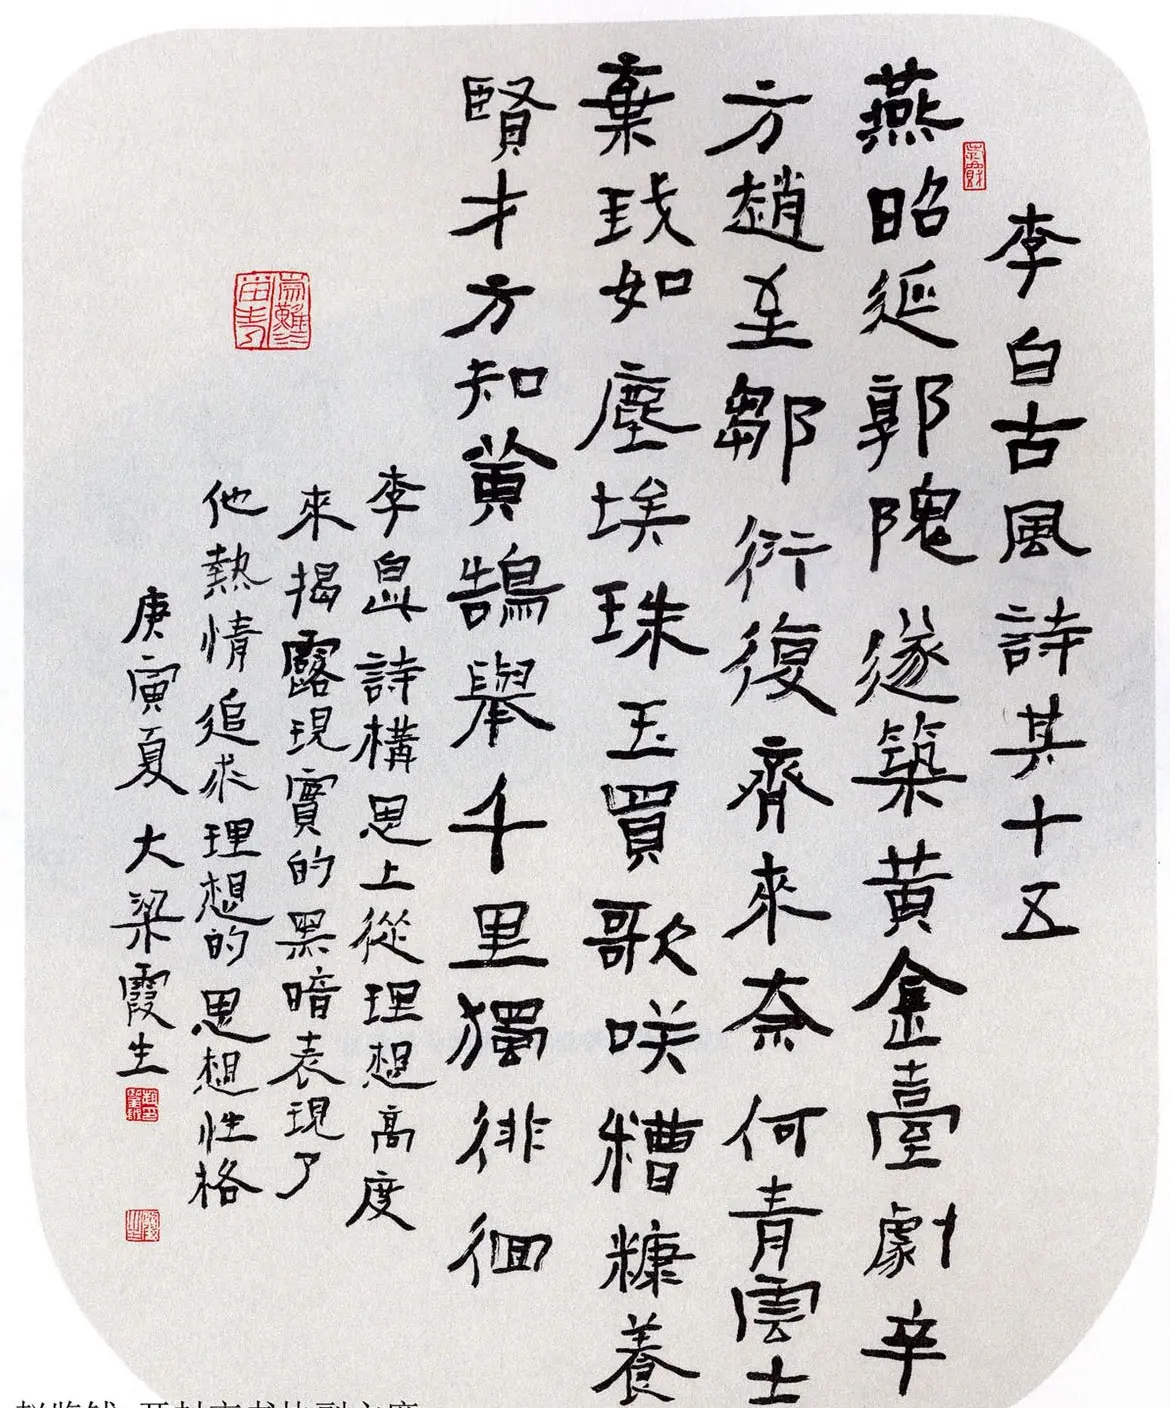 李白古風詩其十五
燕昭延郭隗遂築黃金臺劇辛
方趙至鄒衍復齊來奈何青雲士
棄我如塵埃珠玉買歌咲糟糠養
賢才方知黃鵠舉千里獨徘徊
李白此詩構思上從理想高度
來揭露現實的黑暗表現了
他熱情追求理想的思想性格
庚寅夏大梁霞生